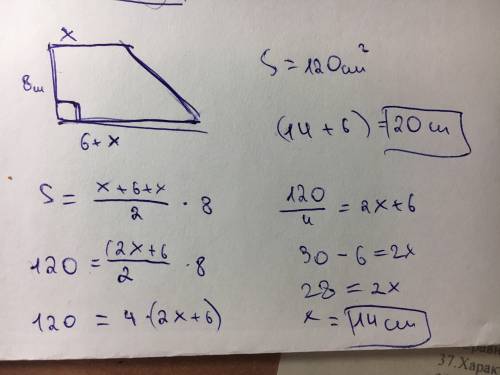 x
8 cm
6 + x
S = 120 cm²
(14 + 6) = 20 cm
S = (x + 6 + x)/2 · 8
120 = (2x + 6/2 · 8
120 = 4 · (2x + 6)
120/4 = 2x + 6
30 - 6 = 2x
28 = 2x
x = 14 cm
37.Харак